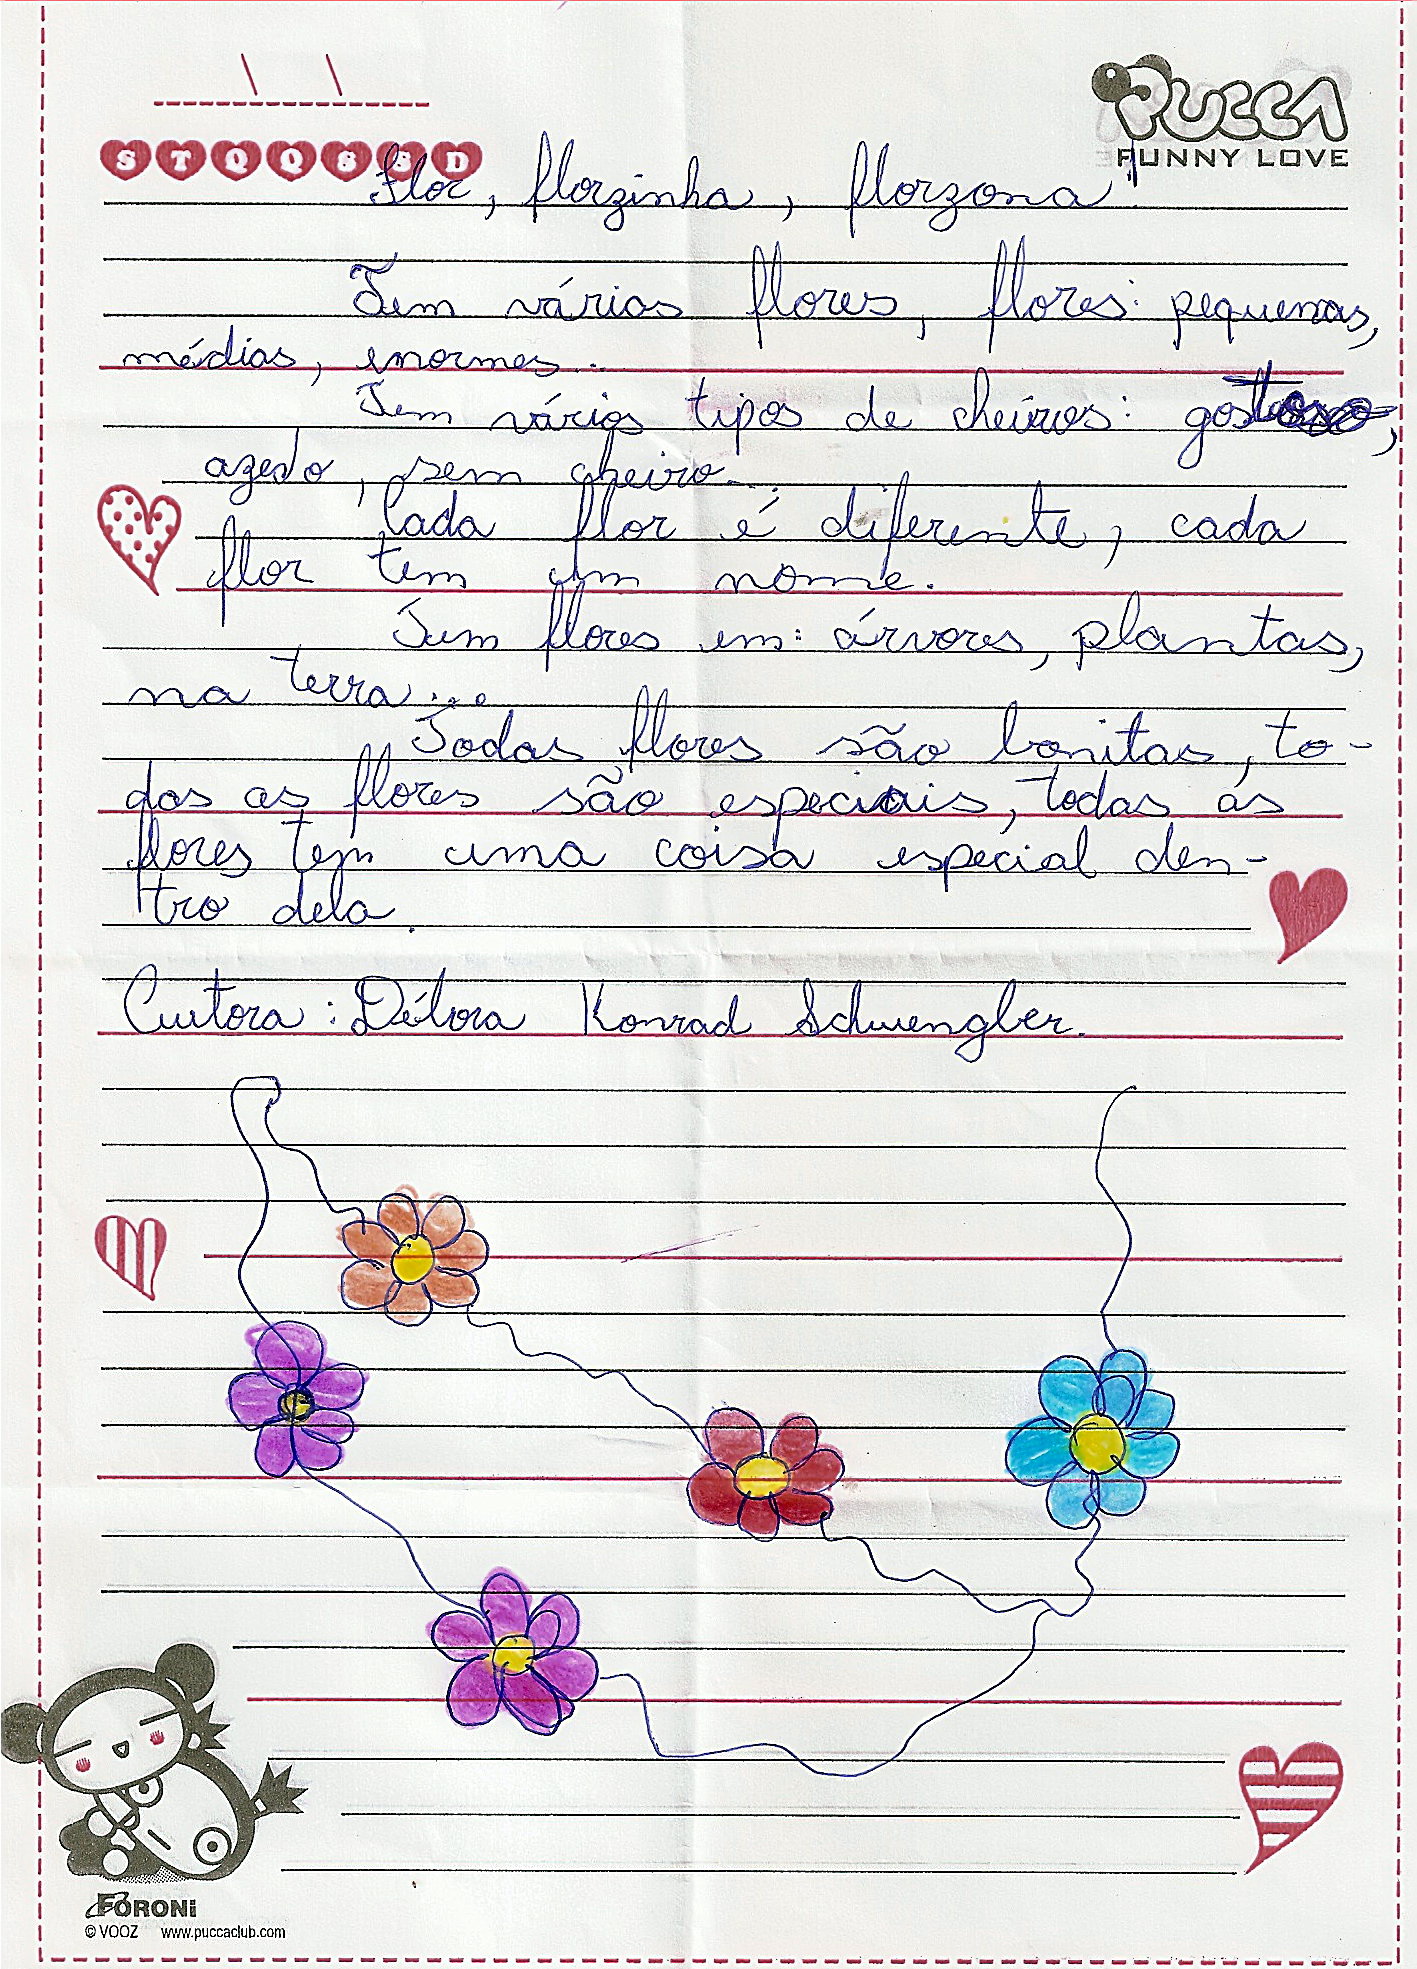 PUCCA
FUNNY LOVE
S T Q Q S S D
Flor, florzinha, florzona!
Tem várias flores, flores: pequenas,
médias, enormes...
Tem vários tipos de cheiros: gostoso,
azedo, sem cheiro...
Cada flor é diferente, cada
flor tem um nome.
Tem flores em: árvores, plantas,
na terra...
Todas flores são bonitas, to-
das as flores são especiais, todas as
flores tem uma coisa especial den-
tro dela.
Autora: Débora Konrad Schwengber.
FORONI
© VOOZ www.puccaclub.com